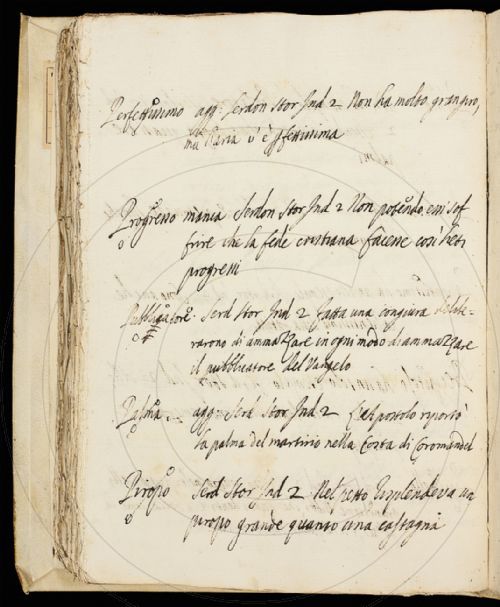 Perfettissimo agg. Serdon Stor Ind 2 Non ha molto gran giro,
ma l'aria v'è pfettissima
Progresso manca Serdon Stor Ind 2 Non potendo essi sof
frire che la fede cristiana facesse così lieti
progressi
Pubblicatore. Serd Stor Ind 2 fatta una congiura delibe-
rarono di ammazzare in ogni modo di ammazzare
il pubblicatore del Vangelo
Palma agg. Serd Stor Ind 2 L'apostolo riportò
la palma del martirio nella Costa di Coromandel
Piropo Serd Stor Ind 2 Nel petto risplendeva un
piropo grande quanto una castagna